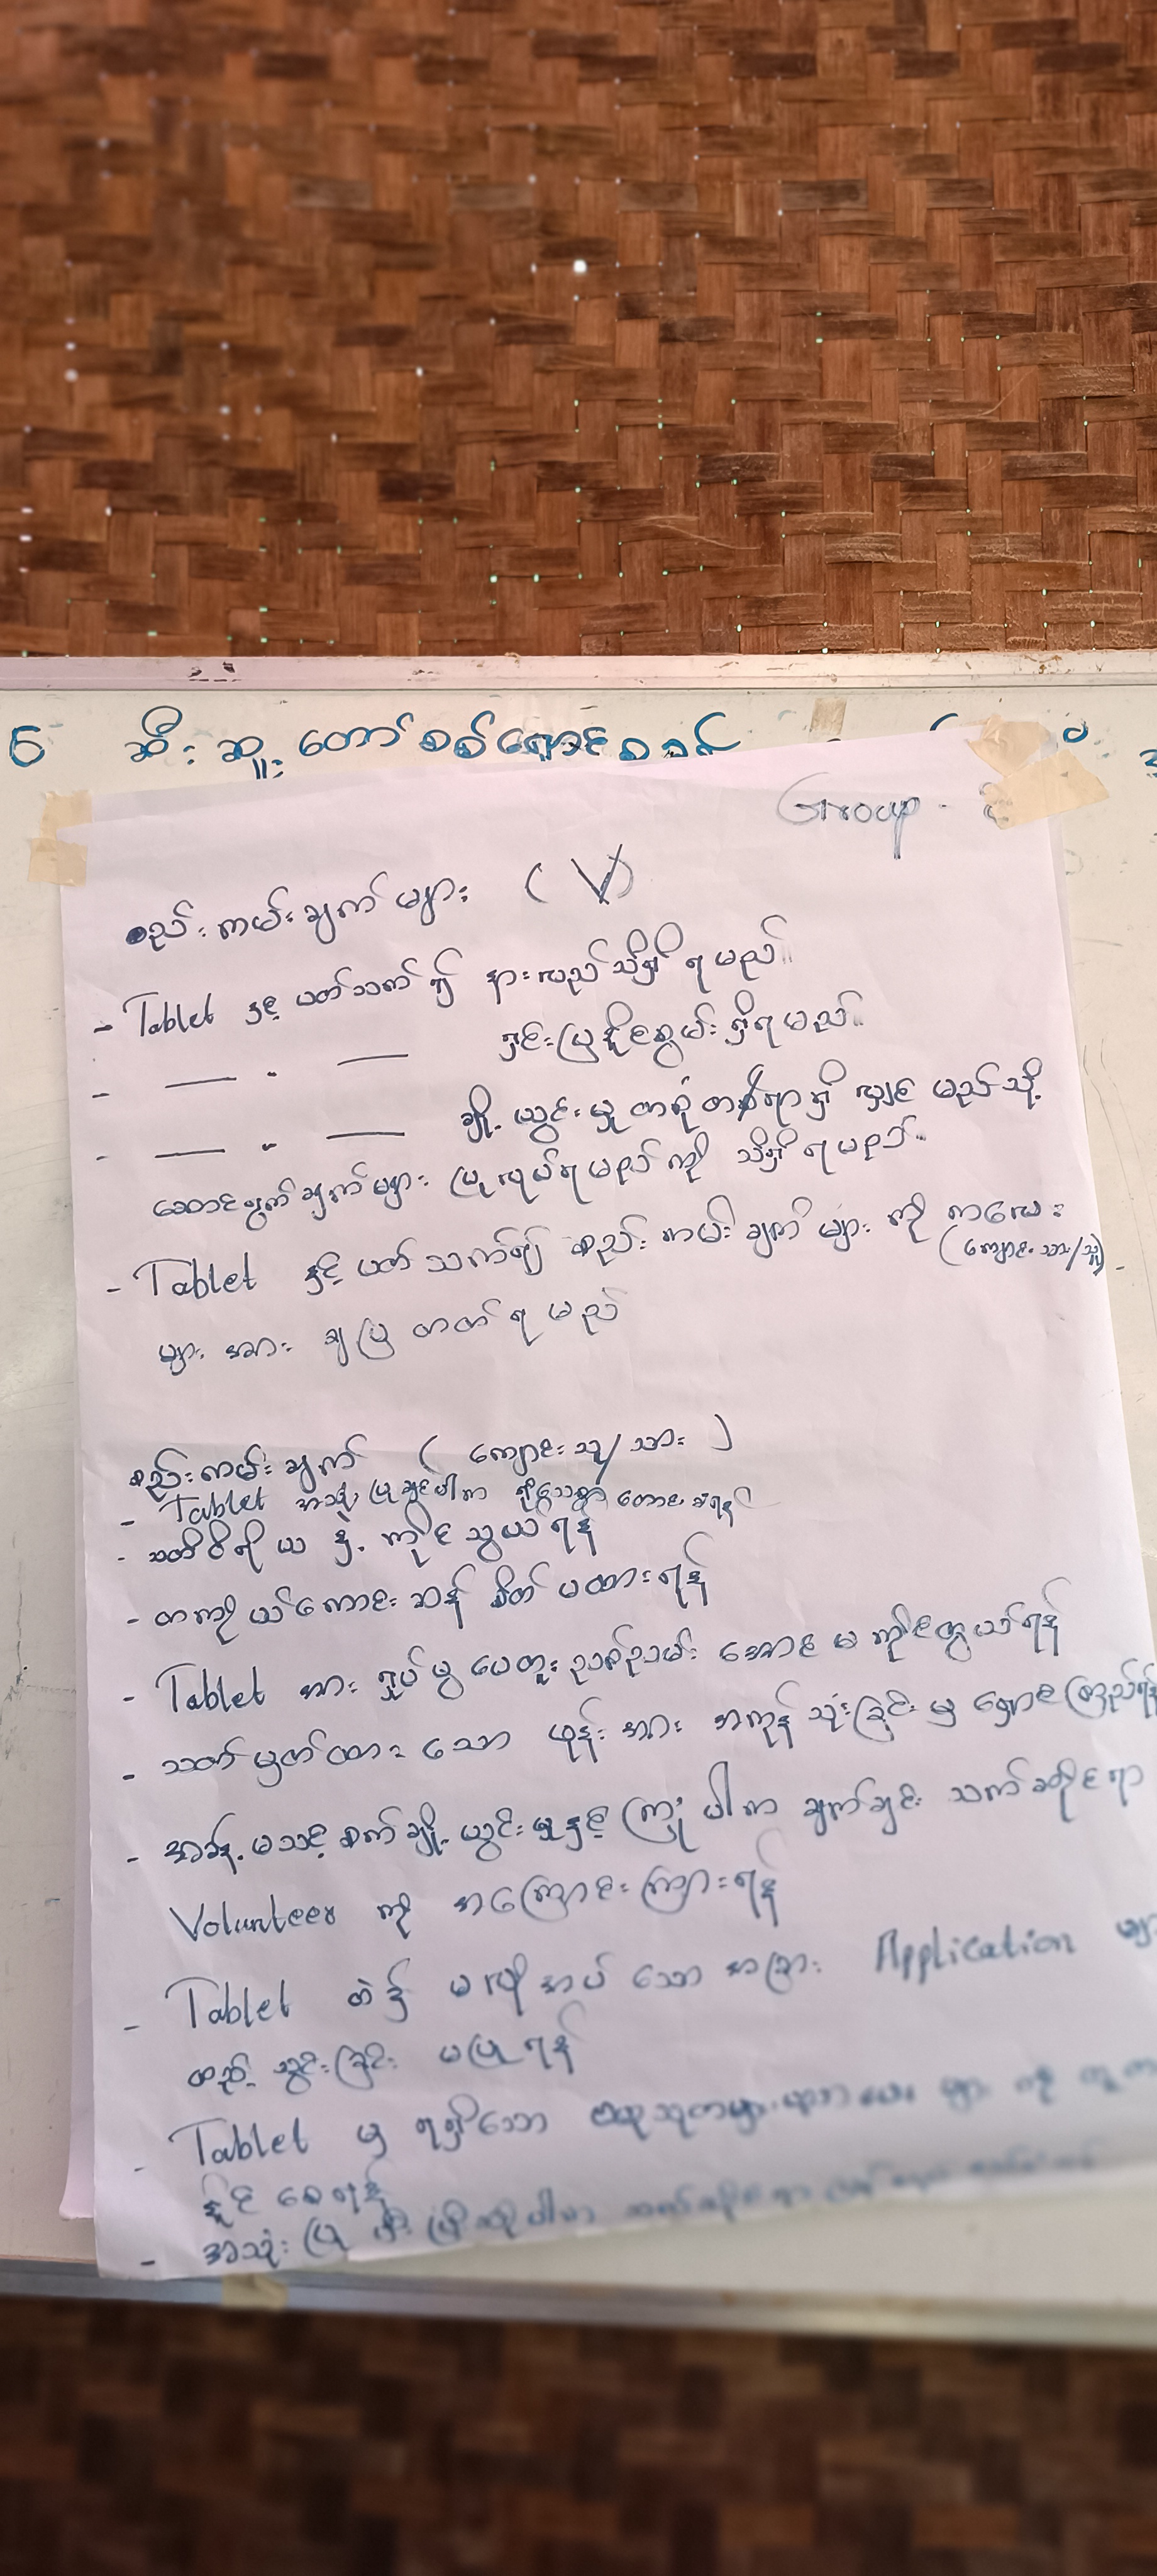 ဆီးဆူးတော်စစ်ရှောင်စခန်း
Group -
စည်းကမ်းချက်များ (V)
- Tablet နှင့် ပတ်သက်၍ နားလည်သိရှိရမည်။
- — " — ရှင်းပြနိုင်စွမ်းရှိရမည်။
- — " — ချို့ယွင်းမှုတစုံတစ်ရာရှိလျှင် မည်သို့
ဆောင်ရွက်ချက်များ ပြုလုပ်ရမည်ကို သိရှိရမည်။
- Tablet နှင့် ပတ်သက်၍ စည်းကမ်းချက်များကို ကလေး
(ကျောင်းသား/သူ)
များအား ချပြတတ်ရမည်
စည်းကမ်းချက် (ကျောင်းသူ/သား)
- Tablet အသုံးပြုချင်ပါက တောင်းခံရန်
- သတိဝိရိယနှင့် ကိုင်သွယ်ရန်
- တကိုယ်ကောင်းဆန်စိတ် မထားရန်
- Tablet အား ရှုပ်ပွပေတူးညစ်ညမ်းအောင် မကိုင်တွယ်ရန်
- သတ်မှတ်ထားသော ဖုန်းအား အကုန်သုံးခြင်းမှ ရှောင်ကြည်ရန်
- အခန့်မသင့် စက်ချို့ယွင်းမှုနှင့်ကြုံပါက ချက်ချင်း သက်ဆိုင်ရာ
Volunteer ကို အကြောင်းကြားရန်
- Tablet ထဲ၌ မလိုအပ်သော အခြား Application များ
ထည့်သွင်းခြင်း မပြုရန်
- Tablet မှ ရရှိသော ဗဟုသုတများ များ ကို
နိုင်စေရန်
- အသုံးပြုပြီး